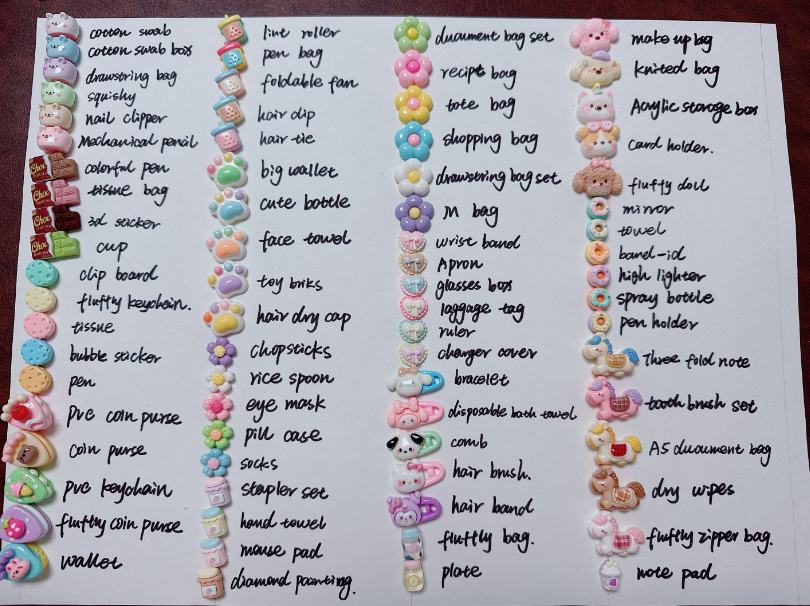 cotton swab
cotton swab box
drawstring bag
squishy
nail clipper
Mechanical pencil
colorful pen
tissue bag
3d sticker
cup
clip board
fluffy keychain.
tissue
bubble sticker
pen
pvc coin purse
coin purse
pvc keychain
fluffy coin purse
wallet
lint roller
pen bag
foldable fan
hair clip
hair tie
big wallet
cute bottle
face towel
toy briks
hair dry cap
chopsticks
rice spoon
eye mask
pill case
socks
stapler set
hand towel
mouse pad
diamond painting.
duaument bag set
recipt bag
tote bag
shopping bag
drawstring bag set
M bag
wrist band
Apron
glasses box
laggage tag
ruler
charger cover
bracelet
disposable bath towel
comb
hair brush.
hair band
fluffly bag.
plate
make up bag
knited bag
Acrylic storage box
card holder.
fluffy doll
mirror
towel
band-id
high lighter
spray bottle
pen holder
Three fold note
tooth brush set
A5 duaument bag
dry wipes
fluffly zipper bag.
note pad
Choc
Choc
Choc
Choc